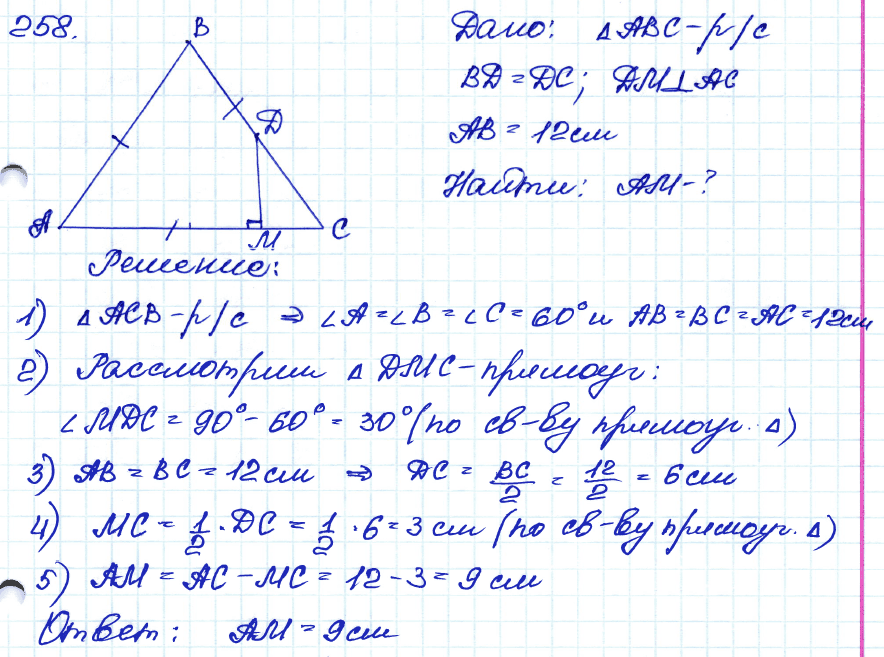 258.
B
Д
A
M
C
Дано: △ABC - р/с
BД = ДC; ДM⊥AC
AB = 12см
Найти: AM - ?
Решение:
1) △ACB - р/с ⇒ ∠A = ∠B = ∠C = 60° и AB = BC = AC = 12см
2) Рассмотрим △ДMC - прямоуг:
∠MДC = 90° - 60° = 30° (по св-ву прямоуг. △)
3) AB = BC = 12см ⇒ ДC = BC/2 = 12/2 = 6см
4) MC = 1/2 · ДC = 1/2 · 6 = 3 см (по св-ву прямоуг. △)
5) AM = AC - MC = 12 - 3 = 9 см
Ответ: AM = 9см